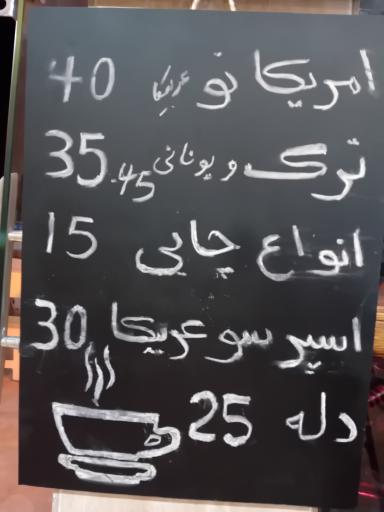 امریکا نو عربیکا 40
ترک و یونانی 35.45
انواع چایی 15
اسپر سو عربیکا 30
دله 25